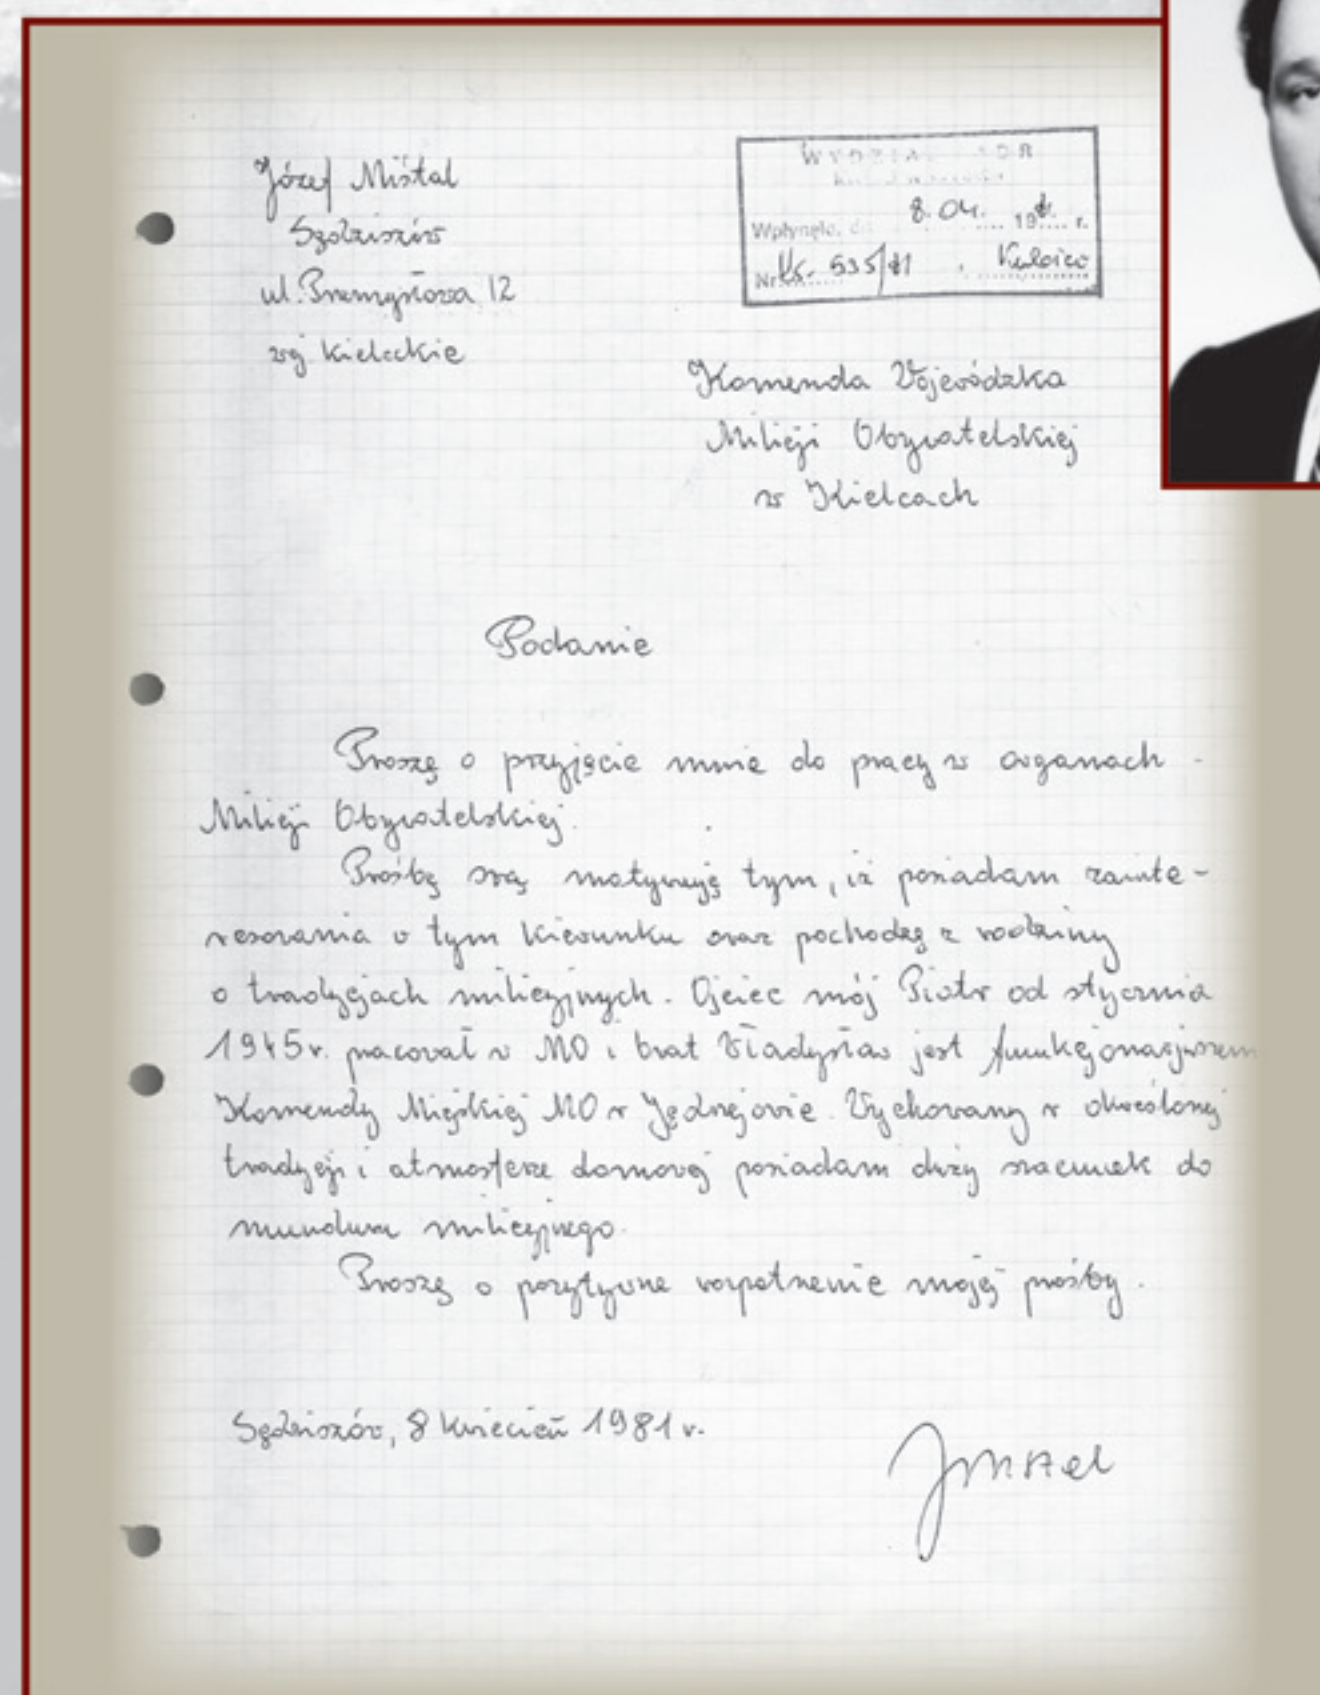 Józef Misztal
Sędziszów
ul. Przemysłowa 12
woj. kieleckie
WYDZIAŁ KADR
Wpłynęło, dn. 8.04. 1981 r.
Nr Ks. 535/81
Komenda Wojewódzka
Milicji Obywatelskiej
w Kielcach
Podanie
Proszę o przyjęcie mnie do pracy w organach
Milicji Obywatelskiej.
Prośbę swą motywuję tym, iż posiadam zainte-
resowania w tym kierunku oraz pochodzę z rodziny
o tradycjach milicyjnych. Ojciec mój Piotr od stycznia
1945r. pracował w MO i brat Władysław jest funkcjonariuszem
Komendy Miejskiej MO w Jędrzejowie. Wychowany w określonej
tradycji i atmosferze domowej posiadam duży szacunek do
munduru milicyjnego.
Proszę o pozytywne rozpatrzenie mojej prośby.
Sędziszów, 8 kwiecień 1981 r.